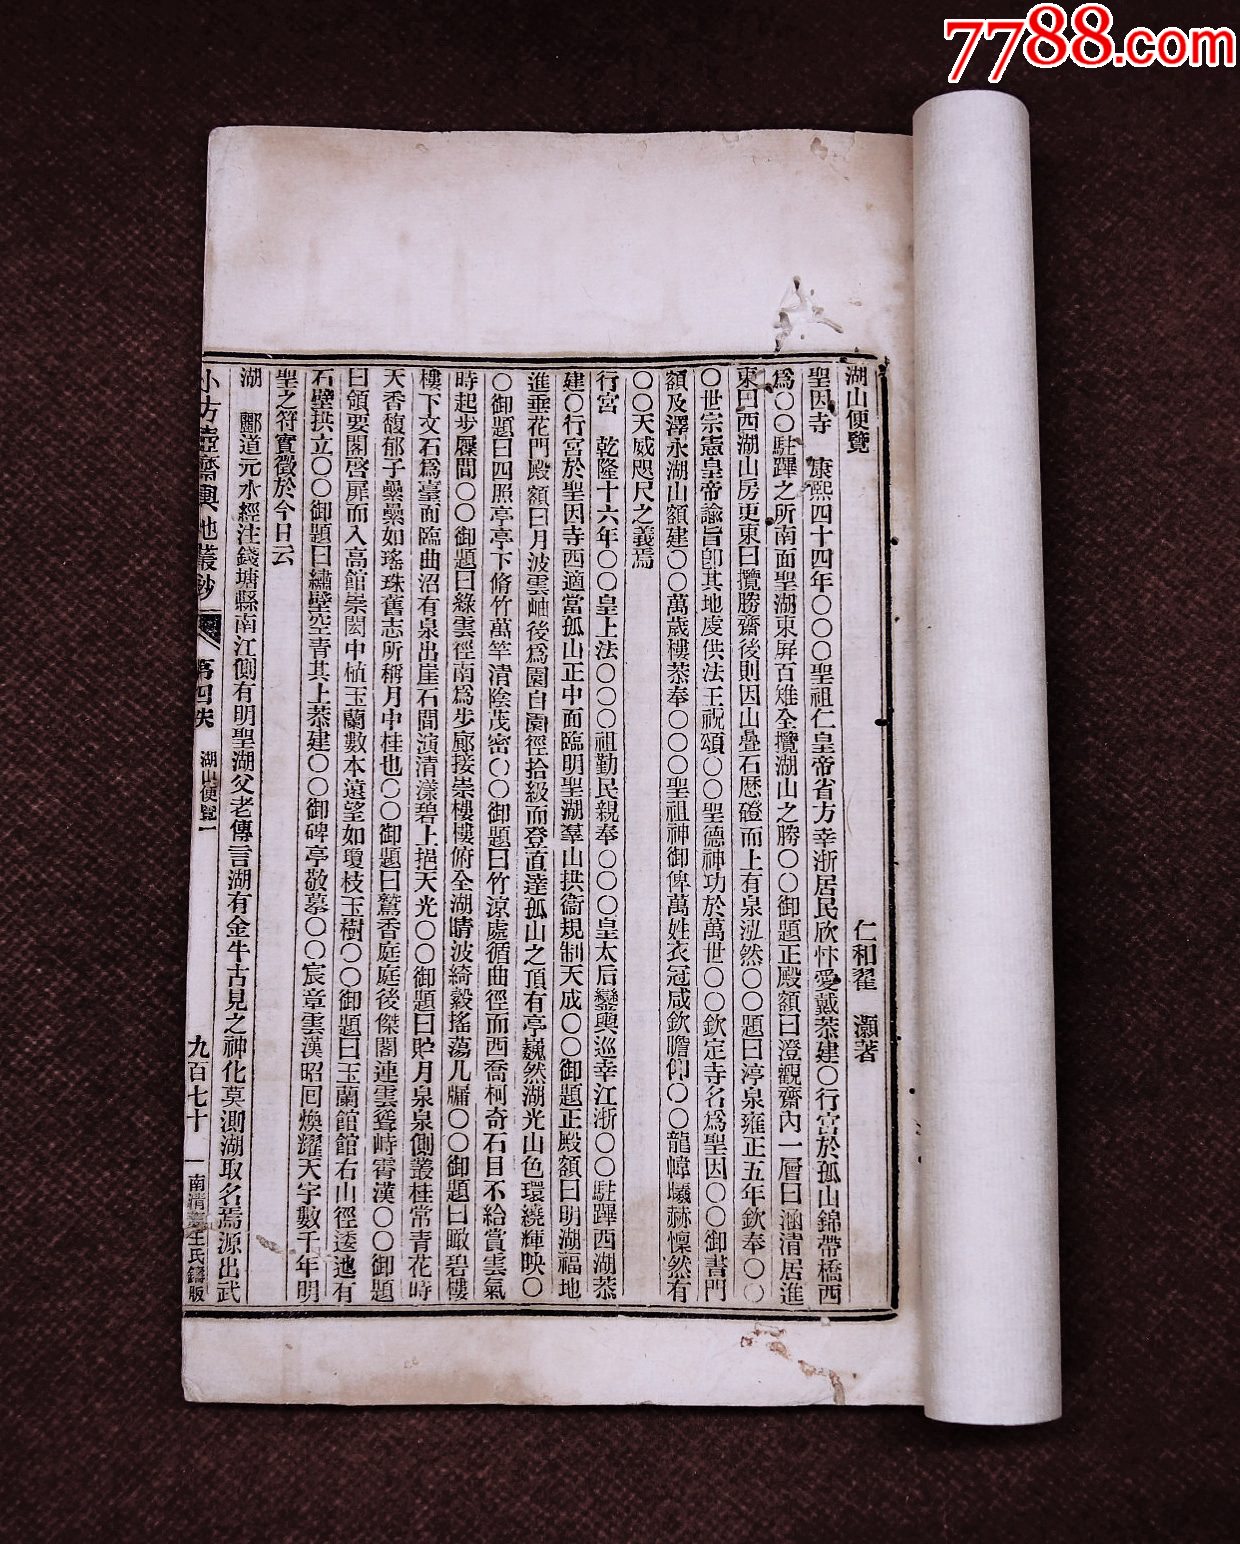 7788.com
湖山便覽 仁和翟 灝著
聖因寺 康熙四十四年〇〇〇聖祖仁皇帝省方幸浙居民欣忭愛戴恭建〇行宮於孤山錦帶橋西
爲〇〇駐蹕之所南面聖湖東屏百雉全攬湖山之勝〇〇御題正殿額曰澄觀齋內一層曰涵清居進
東曰西湖山房更東曰攬勝齋後則因山疊石歷磴而上有泉泓然〇〇題曰渟泉雍正五年欽奉〇〇
〇世宗憲皇帝諭旨卽其地虔供法王祝頌〇〇聖德神功於萬世〇〇欽定寺名爲聖因〇〇御書門
額及澤永湖山額建〇〇萬歲樓恭奉〇〇〇聖祖神御俾萬姓衣冠咸欽瞻仰〇〇龍幃曦赫懍然有
〇〇天威咫尺之義焉
行宮 乾隆十六年〇〇皇上法〇〇〇祖勤民親奉〇〇〇皇太后鑾輿巡幸江浙〇〇駐蹕西湖恭
建〇行宮於聖因寺西適當孤山正中面臨明聖湖羣山拱衞規制天成〇〇御題正殿額曰明湖福地
進垂花門殿額曰月波雲岫後爲園自園徑拾級而登直達孤山之頂有亭巍然湖光山色環繞輝映〇
〇御題曰四照亭亭下脩竹萬竿清陰茂密〇〇御題曰竹涼處循曲徑而西喬柯奇石目不給賞雲氣
時起步屧間〇〇御題曰綠雲徑南爲步廊接崇樓樓俯全湖晴波綺縠搖蕩几牖〇〇御題曰瞰碧樓
樓下文石爲臺而臨曲沼有泉出崖石間演清漾碧上挹天光〇〇御題曰貯月泉泉側叢桂常青花時
天香馥郁子櫐櫐如瑤珠舊志所稱月中桂也〇〇御題曰鷲香庭庭後傑閣連雲聳峙霄漢〇〇御題
曰領要閣啓扉而入高館崇閎中植玉蘭數本遠望如瓊枝玉樹〇〇御題曰玉蘭館館右山徑逶迤有
石壁拱立〇〇御題曰繡壁空青其上恭建〇〇御碑亭敬慕〇〇宸章雲漢昭回煥耀天宇數千年明
聖之符實徵於今日云
湖 酈道元水經注錢塘縣南江側有明聖湖父老傳言湖有金牛古見之神化莫測湖取名焉源出武
小方壺齋輿地叢鈔 第四帙 湖山便覽一 九百七十一 南清河王氏鑄版